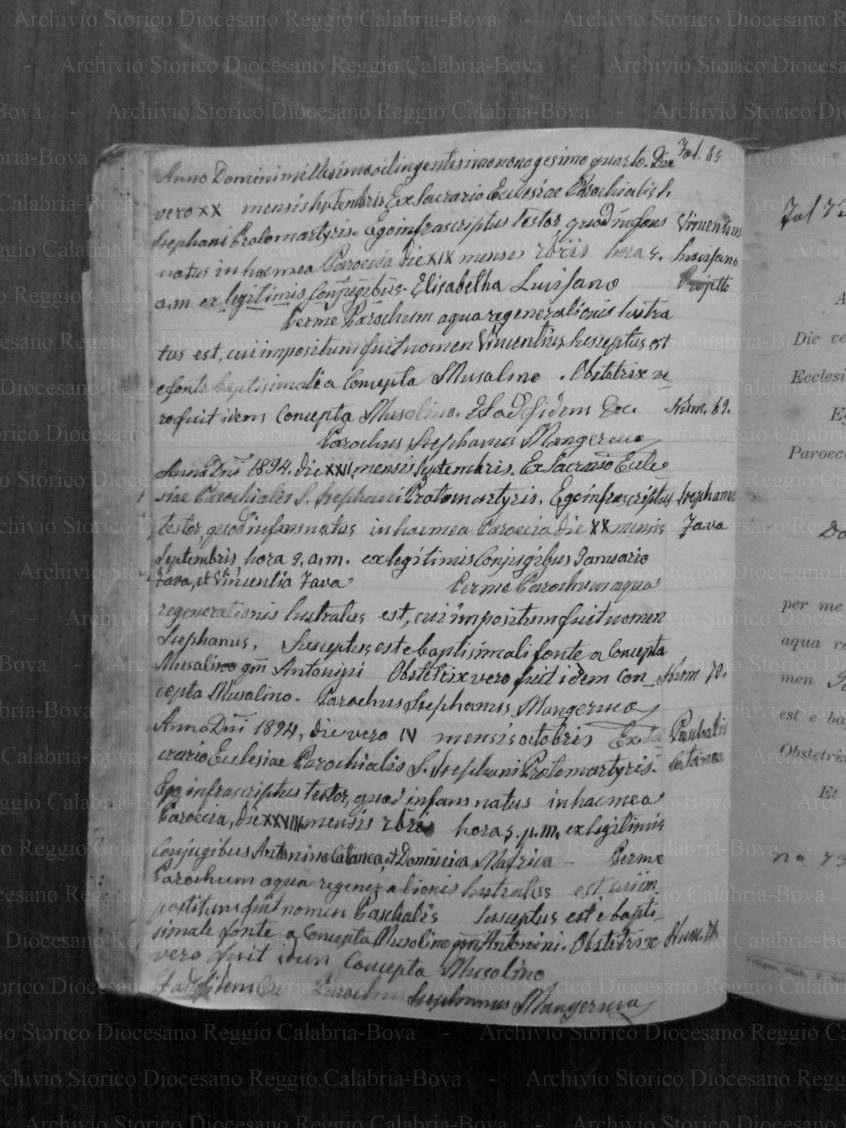 Fol. 65
Anno Domini millesimo octingentesimo nonagesimo quarto. Die
vero XX mensis Septembris Ex Sacrario Ecclesiae Parochialis S.
Stephani Protomartyris. Ego infrascriptus testor, quod infans
natus in hac mea Paroecia die XIX mensis 7bris hora 5.
a.m ex legitimis Conjugibus Elisabetha Luvisano
Vincentius
Luvisano
Projetto
Perme Parochum aqua regenerationis lustra
tus est, cui impositum fuit nomen Vincentius. Susceptus est
e fonte baptismali a Concepta Musolino. Obstetrix ve
ro fuit idem Concepta Musolino. Et ad fidem
Num. 69.
Parochus Stephanus Mangeruca
Anno Dni 1894, die XXII, mensis Septembris. Ex Sacrario Eccle
siae Parochialis S. Stephani Protomartyris. Ego infrascriptus
testor, quod infans natus in hac mea Paroecia die XX mensis
Septembris hora 9. a.m. ex legitimis Conjugibus Januario
Stephanus
Fava
Fava, et Vincentia Fava Perme Parochum aqua
regenerationis lustratus est, cui impositum fuit nomen
Stephanus. Susceptus est e baptismali fonte a Concepta
Musolino qm Antonini Obstetrix vero fuit idem Con_
cepta Musolino. Parochus Stephanus Mangeruca
Num 70.
Anno Dni 1894, die vero IV mensis octobris Ex Sa
crario Ecclesiae Parochialis S. Stephani Protomartyris.
Paschalis
Catanea
Ego infrascriptus testor, quod infans natus in hac mea
Paroecia, die XXVIII mensis 7bris hora 5, p.m. ex legitimis
Conjugibus Antonino Catanea, et Dominica Perme
Parochum aqua regenerationis lustratus est, cui im
postitum fuit nomen Paschalis Susceptus est e bapti_
simale fonte a Concepta Musolino qm Antonini. Obstetrix
vero fuit idem Concepta Musolino
Num. 71
Et ad fidem Parochus Stephanus Mangeruca
A
Die ve
Ecclesi
Eg
Paroec
Do
per me
aqua re
men
est e ba
Obstetri
Et
no. 73
Archivio Storico Diocesano Reggio Calabria-Bova